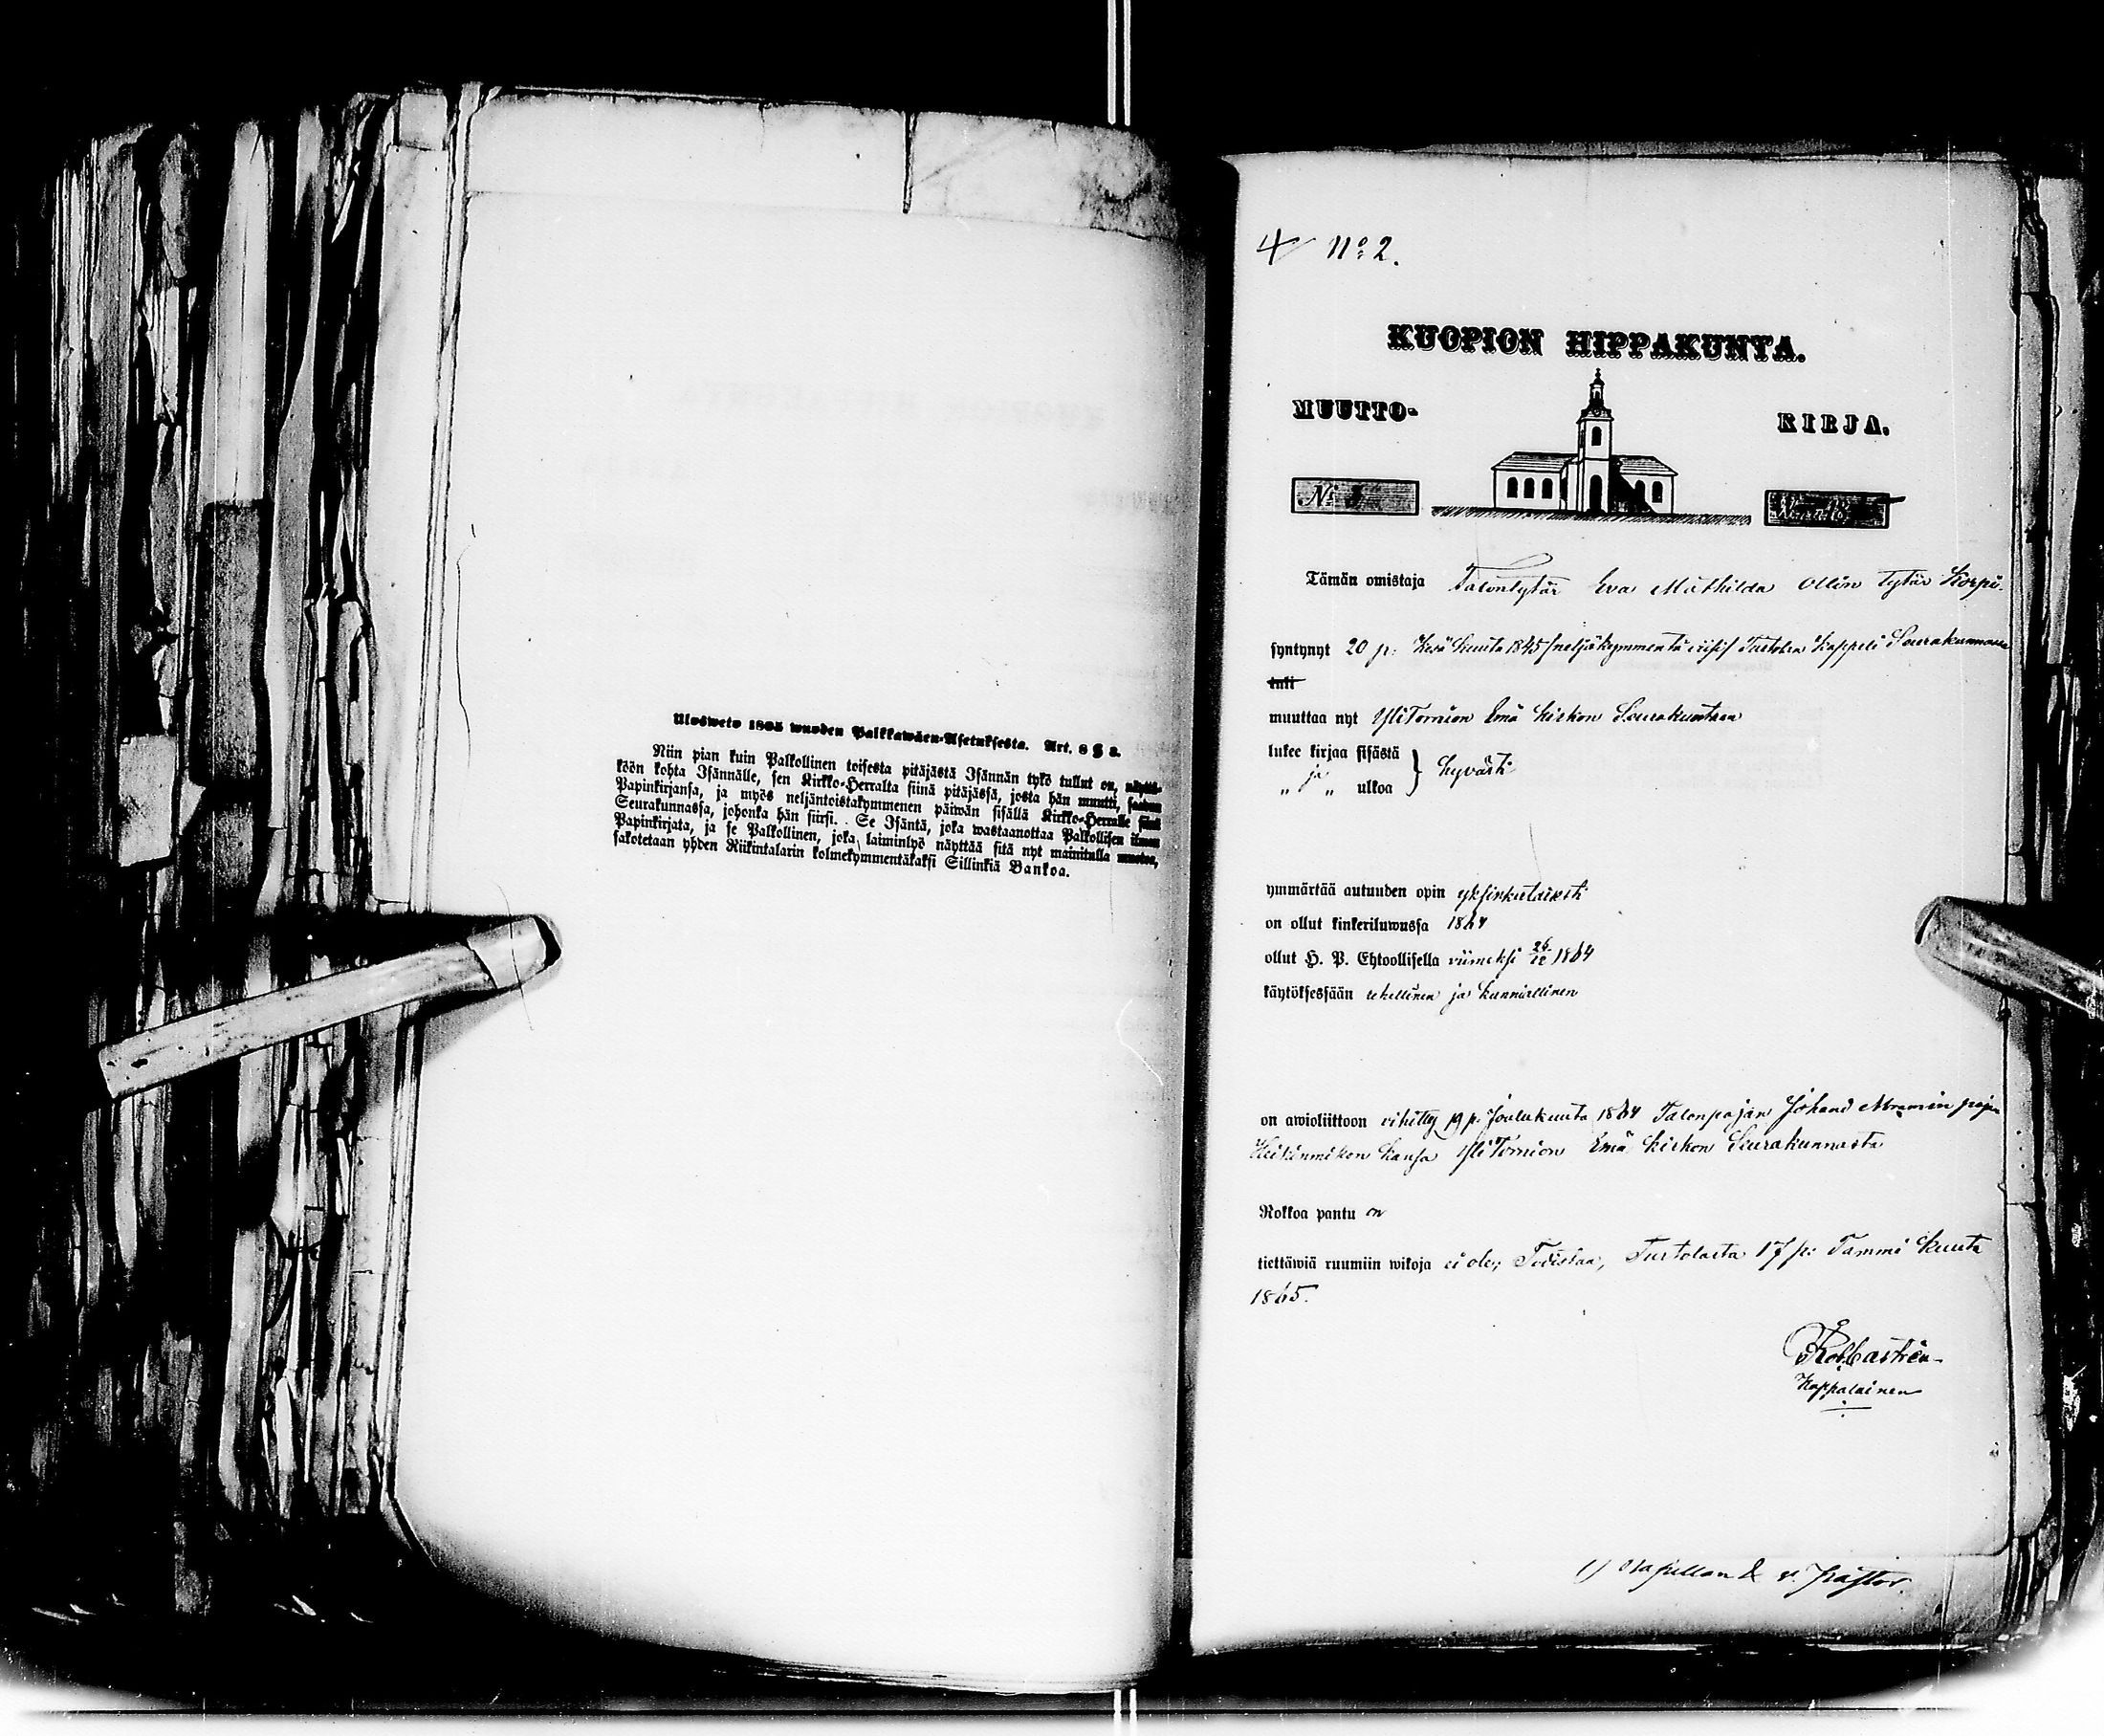 Ulosweto 1805 wuoden Palkkawäen-Asetuksesta. Art. 8 § 3.
Niin pian kuin Palkollinen toisesta pitäjästä Isännän tykö tullut on, näyttä-
köön kohta Isännälle, sen Kirkko-Herralta siinä pitäjässä, josta hän muutti, saadun
Papinkirjansa, ja myös neljäntoistakymmenen päiwän sisällä Kirkko-Herralle siinä
Seurakunnassa, johonka hän siirsi. Se Isäntä, joka wastaanottaa Palkollisen ilman
Papinkirjata, ja se Palkollinen, joka laiminlyö näyttää sitä nyt mainitulla muotoa,
sakotetaan yhden Riikintalarin kolmekymmentäkaksi Sillinkiä Bankoa.
4 No 2.
KUOPION HIPPAKUNTA.
MUUTTO- KIRJA.
No 3
Tämän omistaja Talontytär Eva Mathilda Ollin tytär Korpi-
syntynyt 20 p: Kesä Kuuta 1845 /neljäkymmentä viisi/ Turtolan Kappeli Seurakunnassa
tuli
muuttaa nyt YliTornion Emä Kirkon Seurakuntaan
lukee kirjaa sisästä
ja } hyvästi
„ „ ulkoa
ymmärtää autuuden opin yksinkertaisesti
on ollut kinkeriluwussa 1864
ollut H. P. Ehtoollisella viimeksi 26/12 1864
käytöksessään rehellinen ja kunniallinen
on awioliittoon vihitty 19 p. Joulukuuta 1864 Talonpojan Johand Abramin pojan
Heikinmikon kansa YliTornion Emä Kirkon Seurakunnasta
Rokkoa pantu on
tiettäwiä ruumiin wikoja ei ole; Todistaa, Turtolasta 17 p: Tammi Kuuta
1865.
Castrén
Kappalainen
v. Pastor.